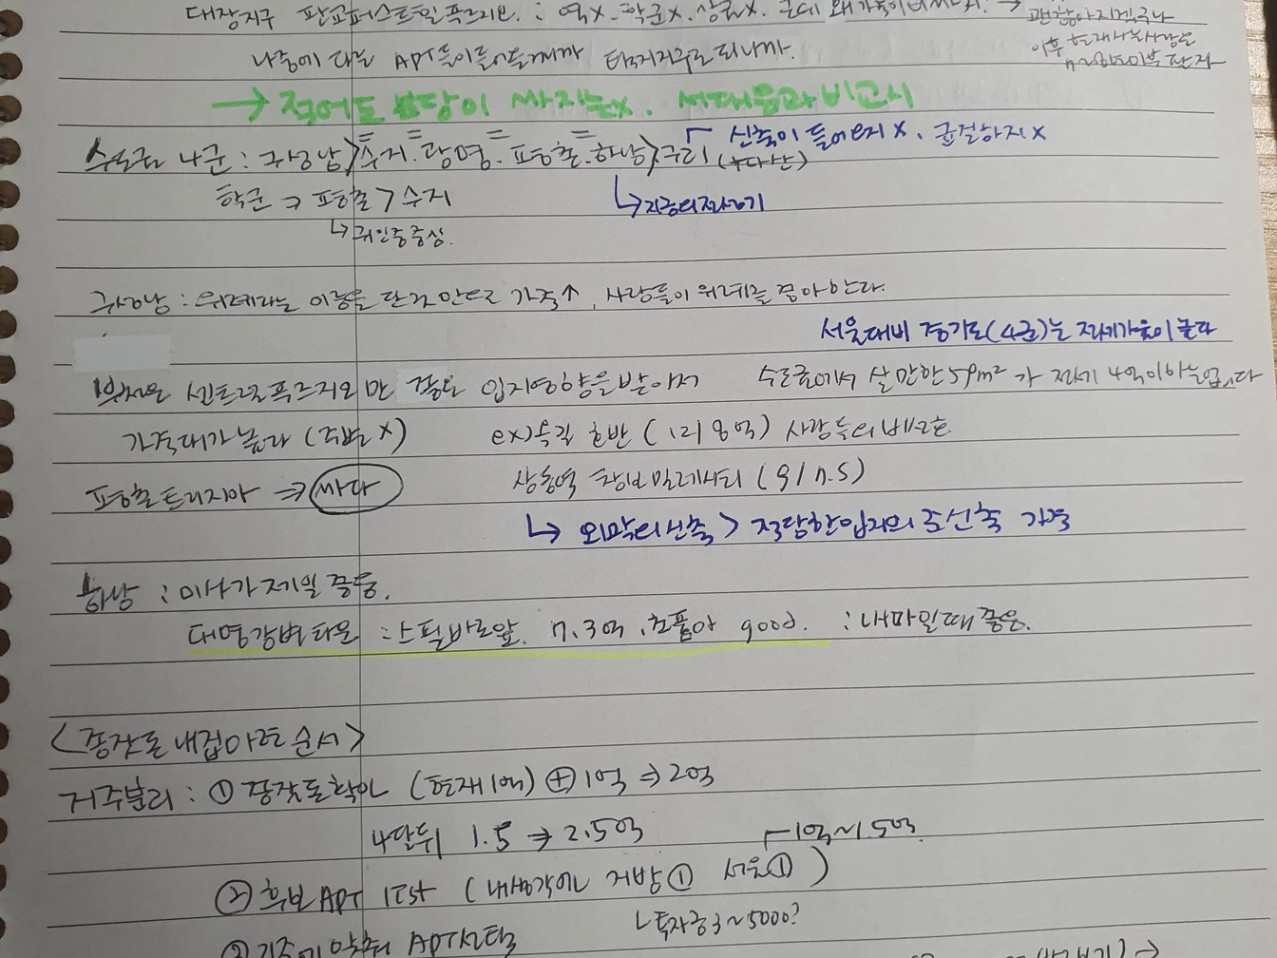 대장지구 판교퍼스트힐푸르지오 : 역x. 학군x. 상권x. 근데 왜 가격이 →
괜찮아지겠구나
이후 현재
나중에 다른 APT들이 들어올까 택지지구로 되니까.
→ 적어도 분당이 싸지는x. 서대문과 비교시
수도권 나군 : 구성남 > 수지. 광명. 평촌. 하남 > 구리 (+다산)
신축이 들어오지 x. 균질하지 x
학군 → 평촌 > 수지
↳ 지금의 전농기
↳ 귀인중중심.
구성남 : 위례라는 이름을 단 것 만으로 가격↑, 사람들이 위례로 좋아한다.
서울대비 경기도(4군)는 전세가율이 높다
부천은 센트럴푸르지오만 중동 입지영향을 받아서
수도권에서 살만한 59m² 가 전세 4억이하는 없다
가격대가 높다 (주변x)
ex) 목감 호반 (1리 8억) 사람들의 비선호
평촌트리지아 ⇒ 싸다
상동역 한양밀레시티 (9/7.5)
↳ 외곽의 신축 > 적당한 입지의 준신축 가격
하남 : 미사가 제일 중동.
대명강변타운 : 스필바로앞. 7.3억. 초품아 good. : 내마일때 좋은.
<종잣돈 내집마련 순서>
거주분리 : ① 종잣돈확인 (현재1억) ⊕ 1억 ⇒ 2억
4달뒤 1.5 ⇒ 2.5억
1억~1.5억
② 후보APT list (내생각에는 지방① 서울①)
↳ 투자금 3~5000?
③ 기준에 맞춰 APT선택